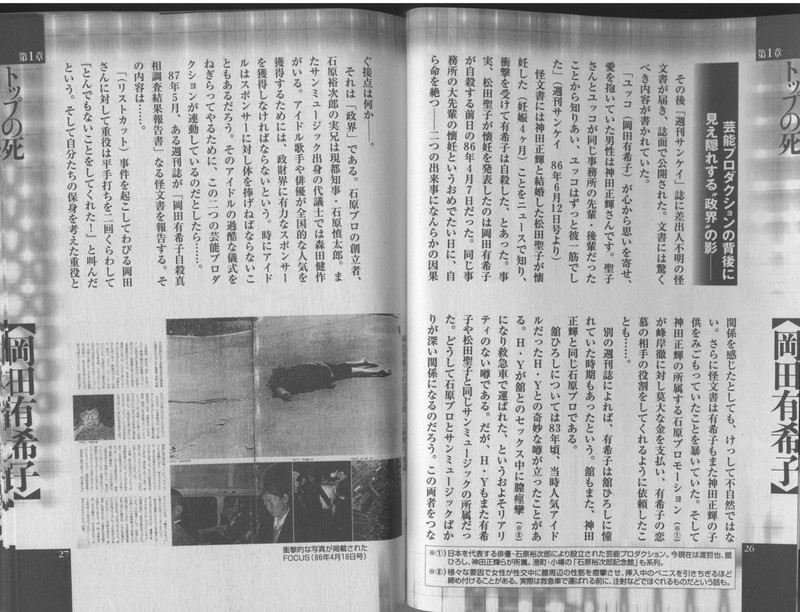 第1章
トップの死
芸能プロダクションの背後に
見え隠れする“政界”の影――
その後「週刊サンケイ」誌に差出人不明の怪
文書が届き、誌面で公開された。文書には驚く
べき内容が書かれていた。
「ユッコ（岡田有希子）が心から思いを寄せ、
愛を抱いていた男性は神田正輝さんです。聖子
さんとユッコが同じ事務所の先輩・後輩だった
ことから知りあい、ユッコはずっと彼一筋でし
た」（週刊サンケイ　86年6月12日号より）
怪文書には神田正輝と結婚した松田聖子が懐
妊した（妊娠4ヶ月）ことをニュースで知り、
衝撃を受けて有希子は自殺した、とあった。事
実、松田聖子が懐妊を発表したのは岡田有希子
が自殺する前日の86年4月7日だった。同じ事
務所の大先輩の懐妊というおめでたい日に、自
ら命を絶つ――二つの出来事になんらかの因果
【岡田有希子】
関係を感じたとしても、けっして不自然ではな
い。さらに怪文書は有希子もまた神田正輝の子
供をみごもっていたことを暴いていた。そして
神田正輝の所属する石原プロモーション（※①）
が峰岸徹に対し莫大な金を支払い、有希子の恋
慕の相手の役割をしてくれるように依頼したこ
とも……。
別の週刊誌によれば、有希子は舘ひろしに憧
れていた時期もあったという。舘もまた、神田
正輝と同じ石原プロである。
舘ひろしについては83年頃、当時人気アイド
ルだったH・Yとの奇妙な噂が立ったことがあ
る。H・Yが舘とのセックス中に膣痙攣（※②）
になり救急車で運ばれた、というおよそリアリ
ティのない噂である。だが、H・Yもまた有希
子や松田聖子と同じサンミュージックの所属だっ
た。どうして石原プロとサンミュージックばか
りが深い関係になるのだろう。この両者をつな
26
※①）日本を代表する俳優・石原裕次郎により設立された芸能プロダクション。今現在は渡哲也、舘
ひろし、神田正輝らが所属。港町・小樽の「石原裕次郎記念館」も系列。
※②）様々な要因で女性が性交中に膣周辺の性筋を痙攣させ、挿入中のペニスを引きちぎるほど
締め付けることがある。実際は救急車で運ばれる前に、注射などでほぐれるものだという話も。
第1章
トップの死
ぐ接点は何か――。
それは「政界」である。石原プロの創立者、
石原裕次郎の実兄は現都知事・石原慎太郎。ま
たサンミュージック出身の代議士では森田健作
がいる。アイドル歌手や俳優が全国的な人気を
獲得するためには、政財界に有力なスポンサー
を獲得しなければならないという。時にアイド
ルはスポンサーに対し体を捧げねばならないこ
ともあるだろう。そのアイドルの過酷な儀式を
ねぎらってやるために、この二つの芸能プロダ
クションが連動しているのだとしたら……。
87年5月、ある週刊誌が「岡田有希子自殺真
相調査結果報告書」なる怪文書を報告する。そ
の内容は……。
「（リストカット）事件を起こしてわびる岡田
さんに対して重役は平手打ちを二回くらわして
『とんでもないことをしてくれた！』と叫んだ
という。そして自分たちの保身を考えた重役と
【岡田有希子】
衝撃的な写真が掲載された
FOCUS（86年4月18日号）
27